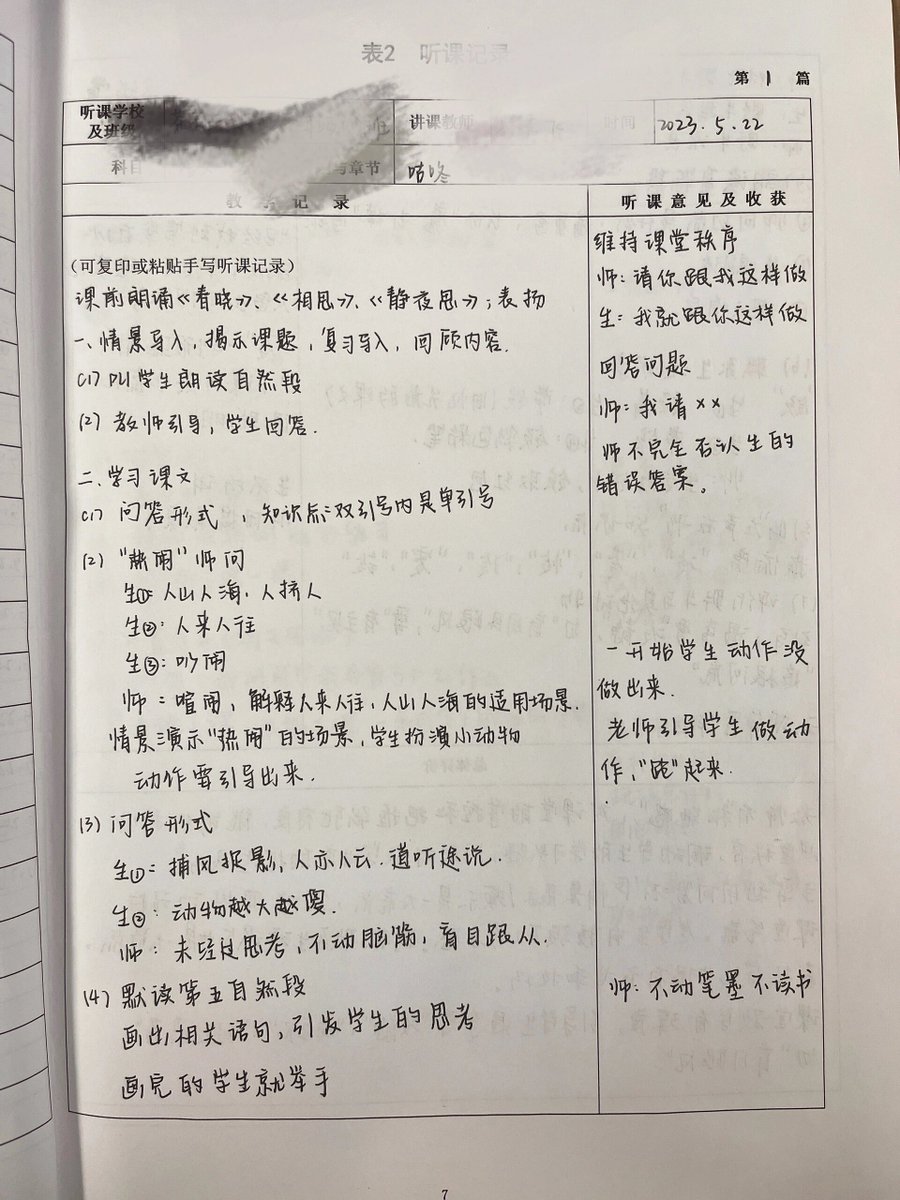 表2 听课记录
第 1 篇
听课学校
及班级
讲课教师
时间
2023.5.22
科目
与章节
咕咚
教学记录
听课意见及收获
(可复印或粘贴手写听课记录)
课前朗诵《春晓》、《相思》、《静夜思》;表扬
一、情景导入,揭示课题,复习导入,回顾内容.
(1) 叫学生朗读自然段
(2) 教师引导,学生回答.
二.学习课文
(1) 问答形式 ,知识点:双引号内是单引号
(2) "热闹"师问
生①:人山人海,人挤人
生②:人来人往
生③:吵闹
师:喧闹,解释人来人往,人山人海的适用场景.
情景演示"热闹"的场景,学生扮演小动物
动作需引导出来.
(3) 问答形式
生①:捕风捉影,人亦人云.道听途说.
生②:动物越大越傻.
师:未经过思考,不动脑筋,盲目跟从.
(4) 默读第五自然段
画出相关语句,引发学生的思考
画完的学生就举手
维持课堂秩序
师:请你跟我这样做
生:我就跟你这样做
回答问题
师:我请××
师不完全否认生的
错误答案。
一开始学生动作没
做出来.
老师引导学生做动
作,"跑"起来.
师:不动笔墨不读书
7